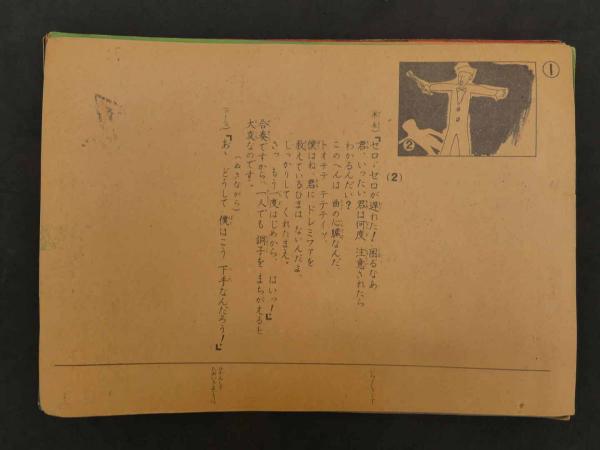 ①
②
(2)
「セロ・セロが遅れた！ 困るなあ
君、いったい君は何度 注意されたら
わかるんだい？
このへんは 曲の心臓なんだ。
トオテテ テテテイ、
僕はね、君に ドレミファを
教えているひまは ないんだよ。
しっかりして くれたまえ。
さっ もう一度はじめから。 はいっ！」
合奏ですから、一人でも 調子を まちがえると
大変なのです。
(ぬきながら)
「あゝ どうして 僕はこう 下手なんだろう！」